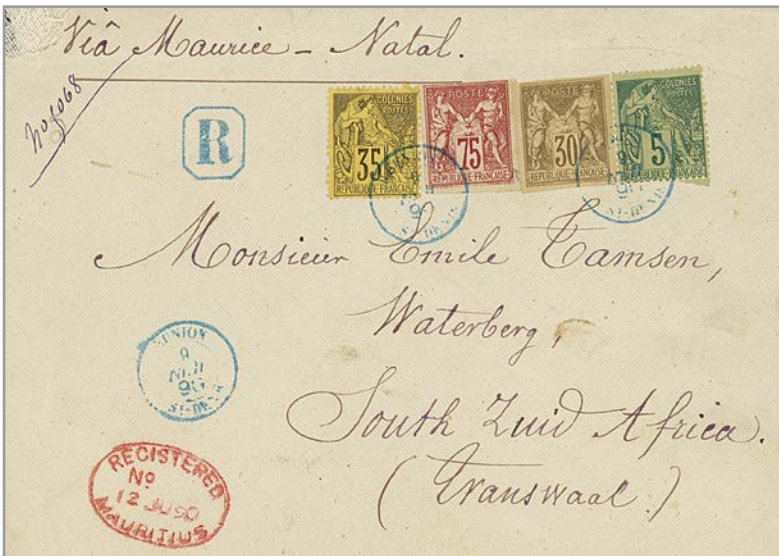 Viâ Maurice - Natal.
No 6068
R
COLONIES
POSTES
35
REPUBLIQUE FRANCAISE
POSTE
75
REPUBLIQUE FRANCAISE
POSTE
30
REPUBLIQUE FRANCAISE
COLONIES
POSTES
5
REPUBLIQUE FRANCAISE
ST-DENIS
ST-DENIS
Monsieur Emile Tamsen,
Waterberg,
South Zuid Africa.
(Transwaal.)
REUNION
9
JUIN
90
ST-DENIS
REGISTERED
No
12 JU 90
MAURITIUS